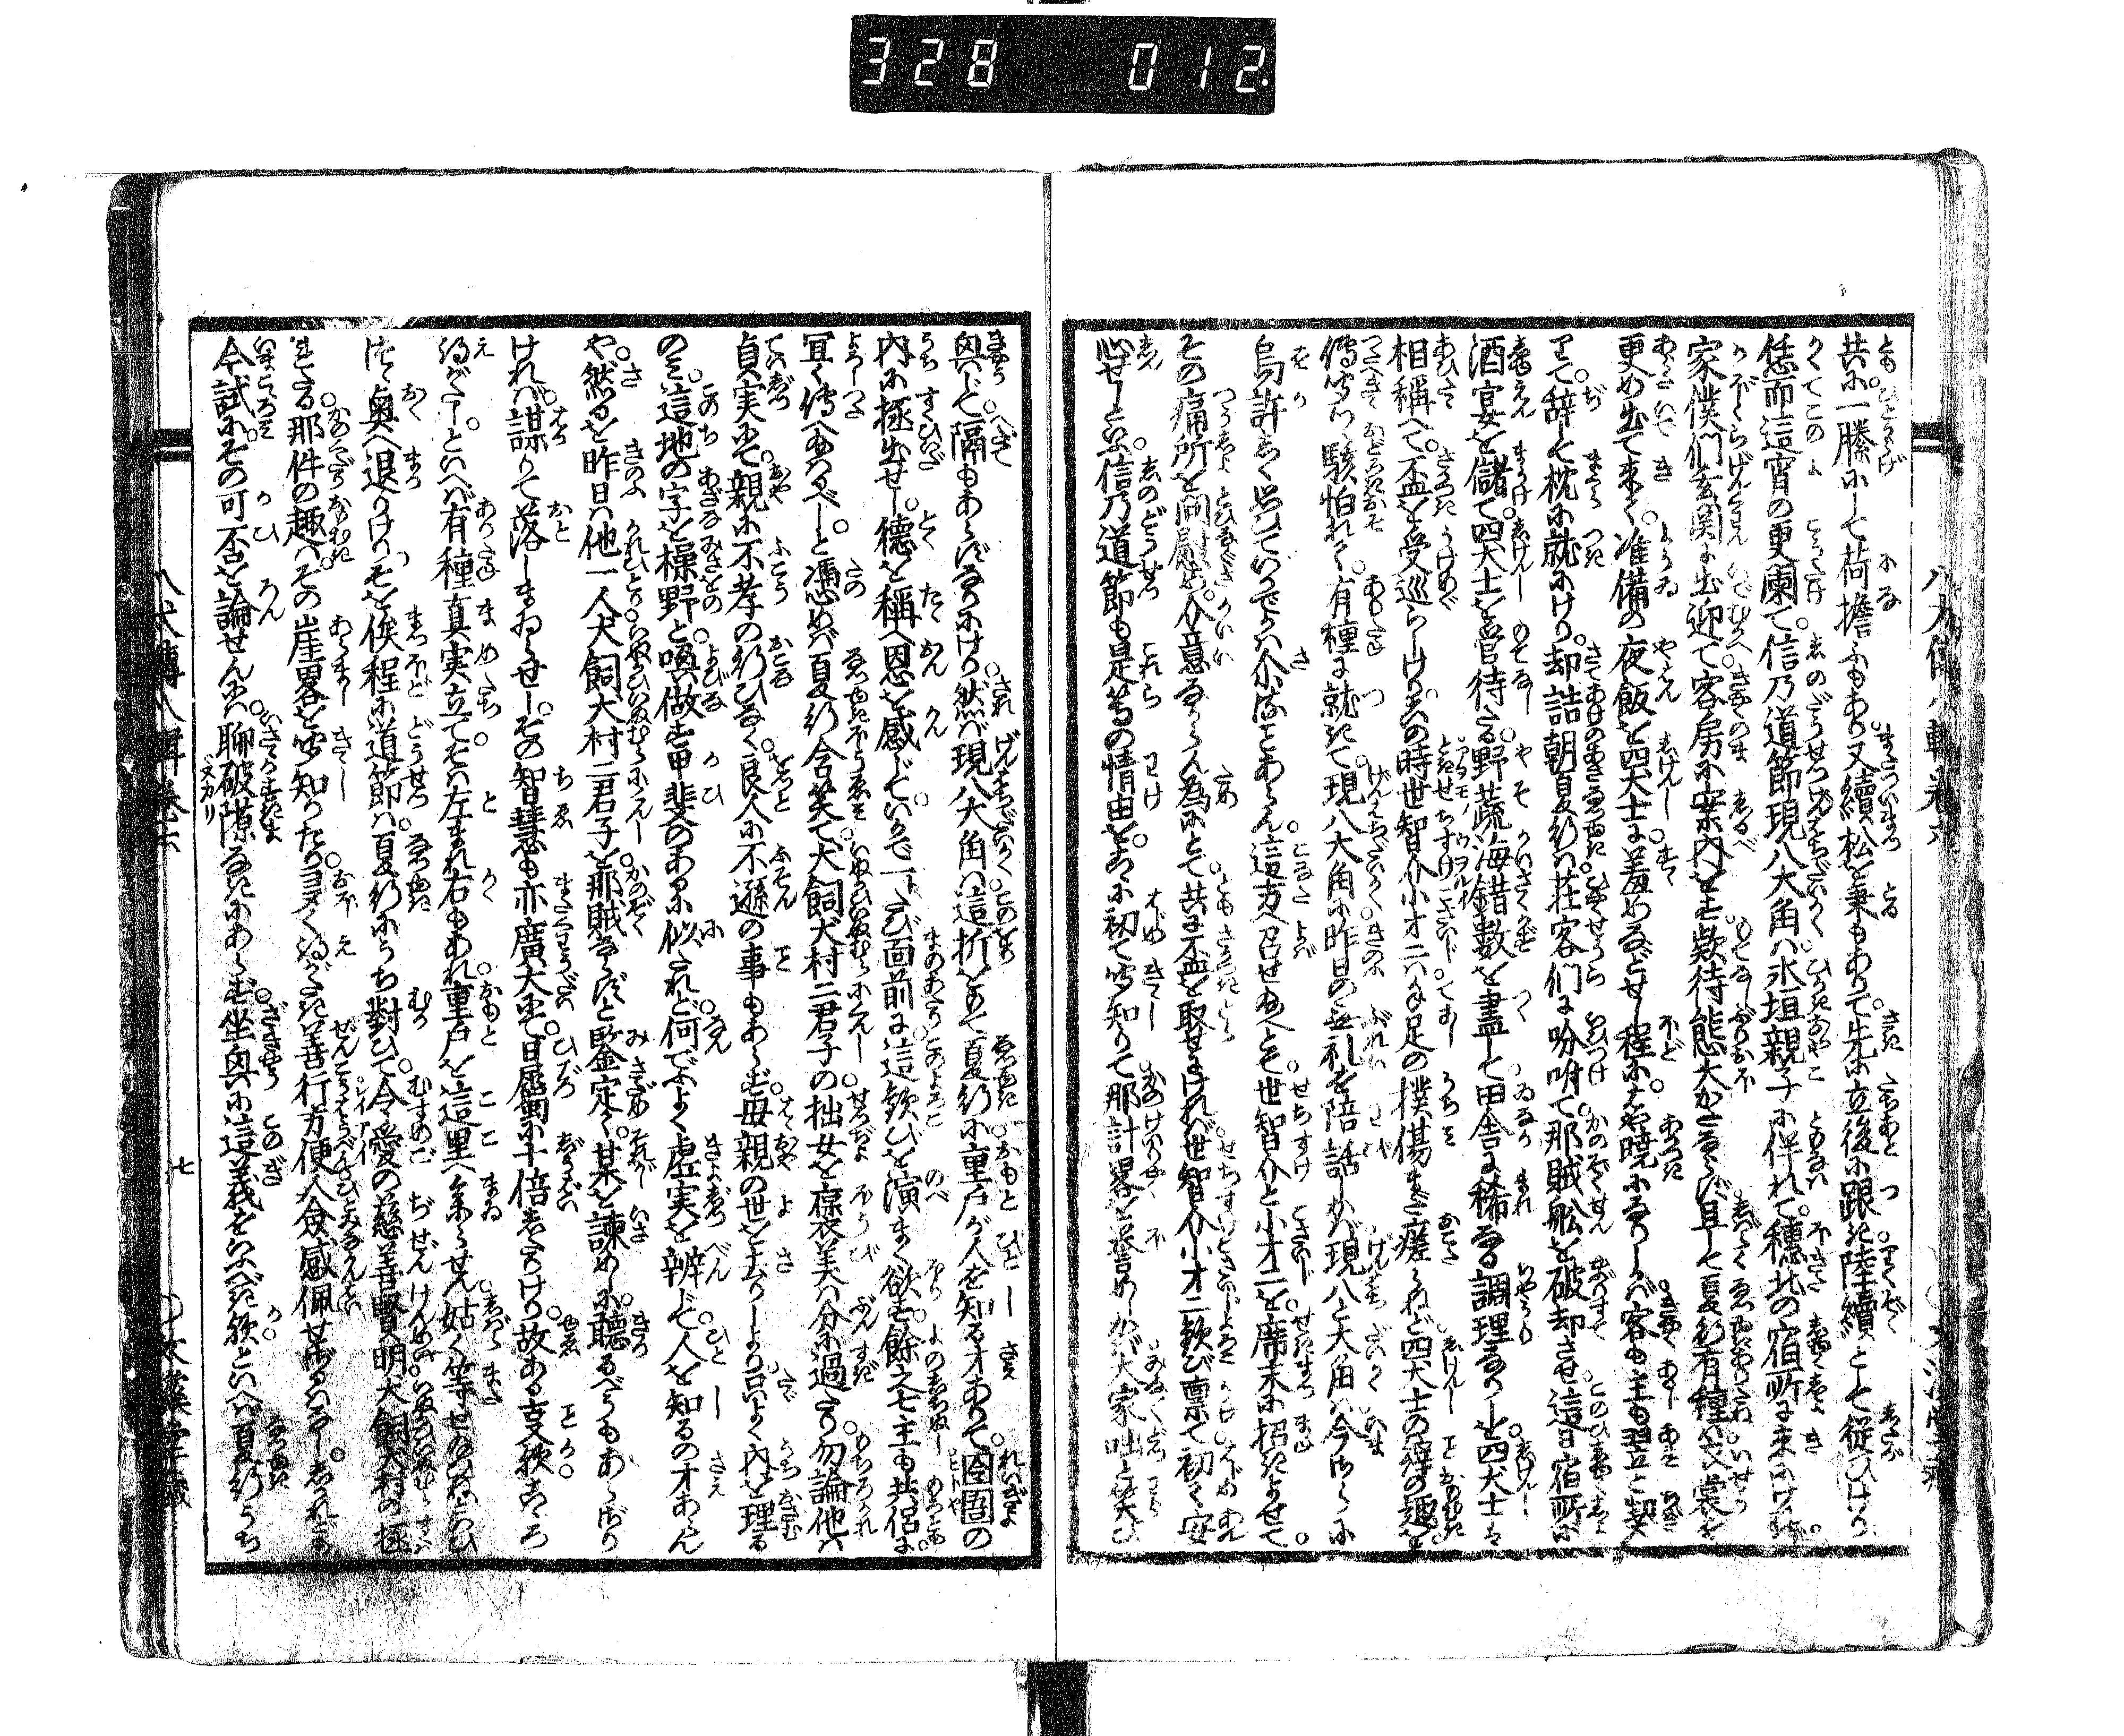 328 012.
共に一擔にして荷擔ふもあり又續松を秉もありて先に立後に跟き陸續として従ひけり
恁而這宵の更闌て信乃道節現八大角は氷垣親子に伴れて穗北の宿所に来にければ
家僕們玄関に出迎て客房に案内をす欵待態大かたならず且して夏行有種は衣裳を
更め出て来て准備の夜飯を四犬士に羞めなどせし程にはや暁になりしかば客も主も翌こそと契
りて辞して枕に就にけり却詰朝夏行は荘客們に吩咐て那賊舩を破却させ這日宿所に
酒宴を儲て四犬士を管待す野蔬海錯数を盡して田舎に稀なる調理なりしを四犬士は
相稱へて盃を受巡らしけりその時世智介小才二は手足の撲傷まだ瘥らねど四犬士の辞の趣を
傳聞て駭怕れて有種に就きて現八大角に昨日の無礼を陪話しかば現八と大角は今さらに
烏許がましく思ひていかでかは介ることあらん這方へ召せ給へとて世智介と小才二を席末に招きよせて
その痛所を問慰め介意なからん為にとて共に盃を取せければ世智介小才二歓び稟て初て安
心せしといふ信乃道節も是等の情由をここに初て聞知りて那計畧を誉めしかば大家咄と笑ひ
興じて隔もあらずなりにけり然ば現八大角は這折をもて夏行に重戸が人を知る才ありて囹圄の
内に拯出せし徳を稱へ恩を感じていかで一たび面前に這歓びを演まく欲す餘之七主も共侶に
宜く傳へ給へかしと憑めば夏行含笑て犬飼犬村二君子の拙女を葆美は分に過たり勿論他は
貞実にて親に不孝の行ひなく良人に不遜の事もあらず母親の世を去りしより品よく内を理る
のみ這地の字を櫲野と喚做す甲斐のあるに似たれど何でふよく虚実を辨じて人を知るの才あらん
や然るを昨日は他一人犬飼犬村二君子を那賊ならずと鑒定て某を諫めしに聴るべうもあらざり
ければ謀りて落しまゐらせしその智慧も亦廣大にて日属に十倍したりけり故ある支歟こころ
得がたしといへば有種真実立てそは左まれ右もあれ重戸を這里へ参らせん姑く等せ給ひねといひ
つつ奥へ退りけりそを俟程に道節は夏行にうち對ひて令愛の慈善賢明犬飼犬村の拯
れたる那件の趣はその崖畧を聞知りたりよく得がたき善行方便人僉感佩せざるはなししかれども
今試にその可不を論せんには聊破隙なきにあらず坐興に這義をいふべき歟といへば夏行うち
八犬傳八輯卷六
七